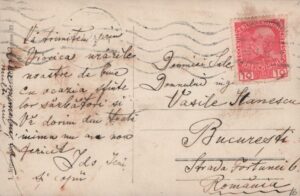 Vă trimitem prin
Viorica urările
noastre de bine
cu ocazia sfinte
lor sărbători și
Vă dorim din toată
inima un an nou
fericit
și copiii
Domniei Sale
Domnului
Vasile Stanescu
București
Strada Fortunei 6
România
10 10